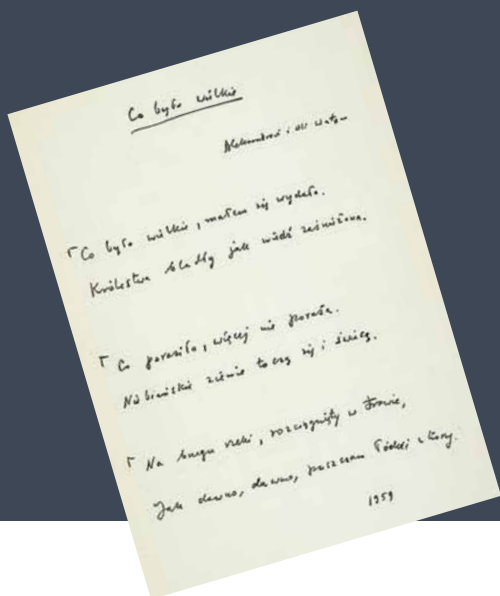 Co było wielkie
Aleksandrowi i Oli Watom
Co było wielkie, małem się wydało.
Królestwa bladły jak miedź zaśnieżona.
Co poraziło, więcej nie poraża.
Niebieskie ziemie toczą się i świecą.
Na brzegu rzeki, rozciągnięty w trawie,
Jak dawno, dawno, puszczam łódki z kory.
1959